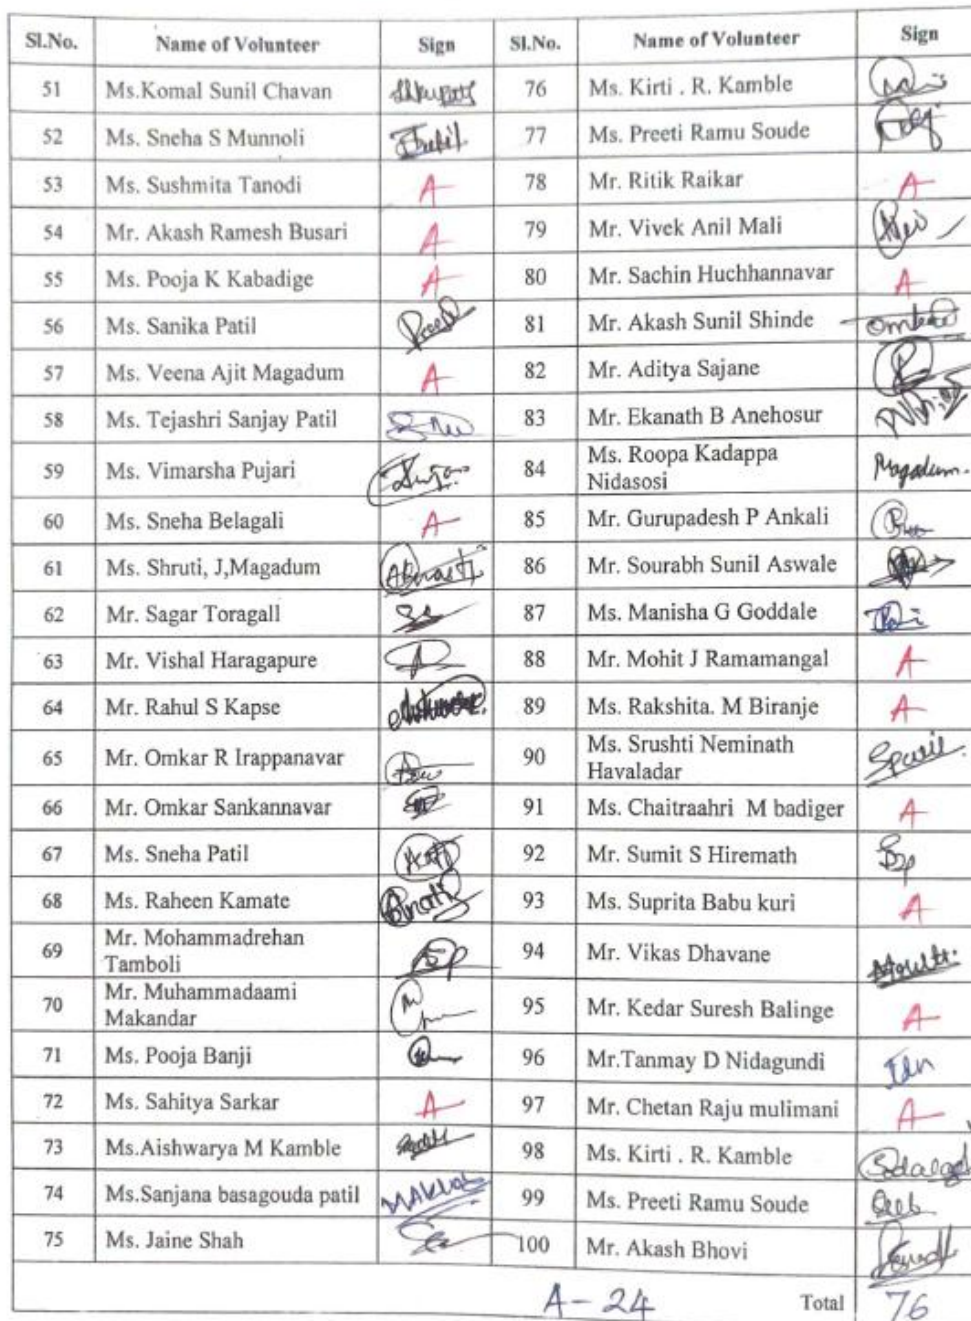 Sl.No. Name of Volunteer Sign Sl.No. Name of Volunteer Sign
51 Ms.Komal Sunil Chavan 76 Ms. Kirti . R. Kamble
52 Ms. Sneha S Munnoli 77 Ms. Preeti Ramu Soude
53 Ms. Sushmita Tanodi A 78 Mr. Ritik Raikar A
54 Mr. Akash Ramesh Busari A 79 Mr. Vivek Anil Mali
55 Ms. Pooja K Kabadige A 80 Mr. Sachin Huchhannavar A
56 Ms. Sanika Patil 81 Mr. Akash Sunil Shinde
57 Ms. Veena Ajit Magadum A 82 Mr. Aditya Sajane
58 Ms. Tejashri Sanjay Patil 83 Mr. Ekanath B Anehosur
59 Ms. Vimarsha Pujari 84 Ms. Roopa Kadappa
Nidasosi Magadum.
60 Ms. Sneha Belagali A 85 Mr. Gurupadesh P Ankali
61 Ms. Shruti, J,Magadum 86 Mr. Sourabh Sunil Aswale
62 Mr. Sagar Toragall 87 Ms. Manisha G Goddale
63 Mr. Vishal Haragapure 88 Mr. Mohit J Ramamangal A
64 Mr. Rahul S Kapse 89 Ms. Rakshita. M Biranje A
65 Mr. Omkar R Irappanavar 90 Ms. Srushti Neminath
Havaladar
66 Mr. Omkar Sankannavar 91 Ms. Chaitraahri M badiger A
67 Ms. Sneha Patil 92 Mr. Sumit S Hiremath
68 Ms. Raheen Kamate 93 Ms. Suprita Babu kuri A
69 Mr. Mohammadrehan
Tamboli 94 Mr. Vikas Dhavane
70 Mr. Muhammadaami
Makandar 95 Mr. Kedar Suresh Balinge A
71 Ms. Pooja Banji 96 Mr.Tanmay D Nidagundi
72 Ms. Sahitya Sarkar A 97 Mr. Chetan Raju mulimani A
73 Ms.Aishwarya M Kamble 98 Ms. Kirti . R. Kamble
74 Ms.Sanjana basagouda patil 99 Ms. Preeti Ramu Soude
75 Ms. Jaine Shah 100 Mr. Akash Bhovi
A - 24 Total 76